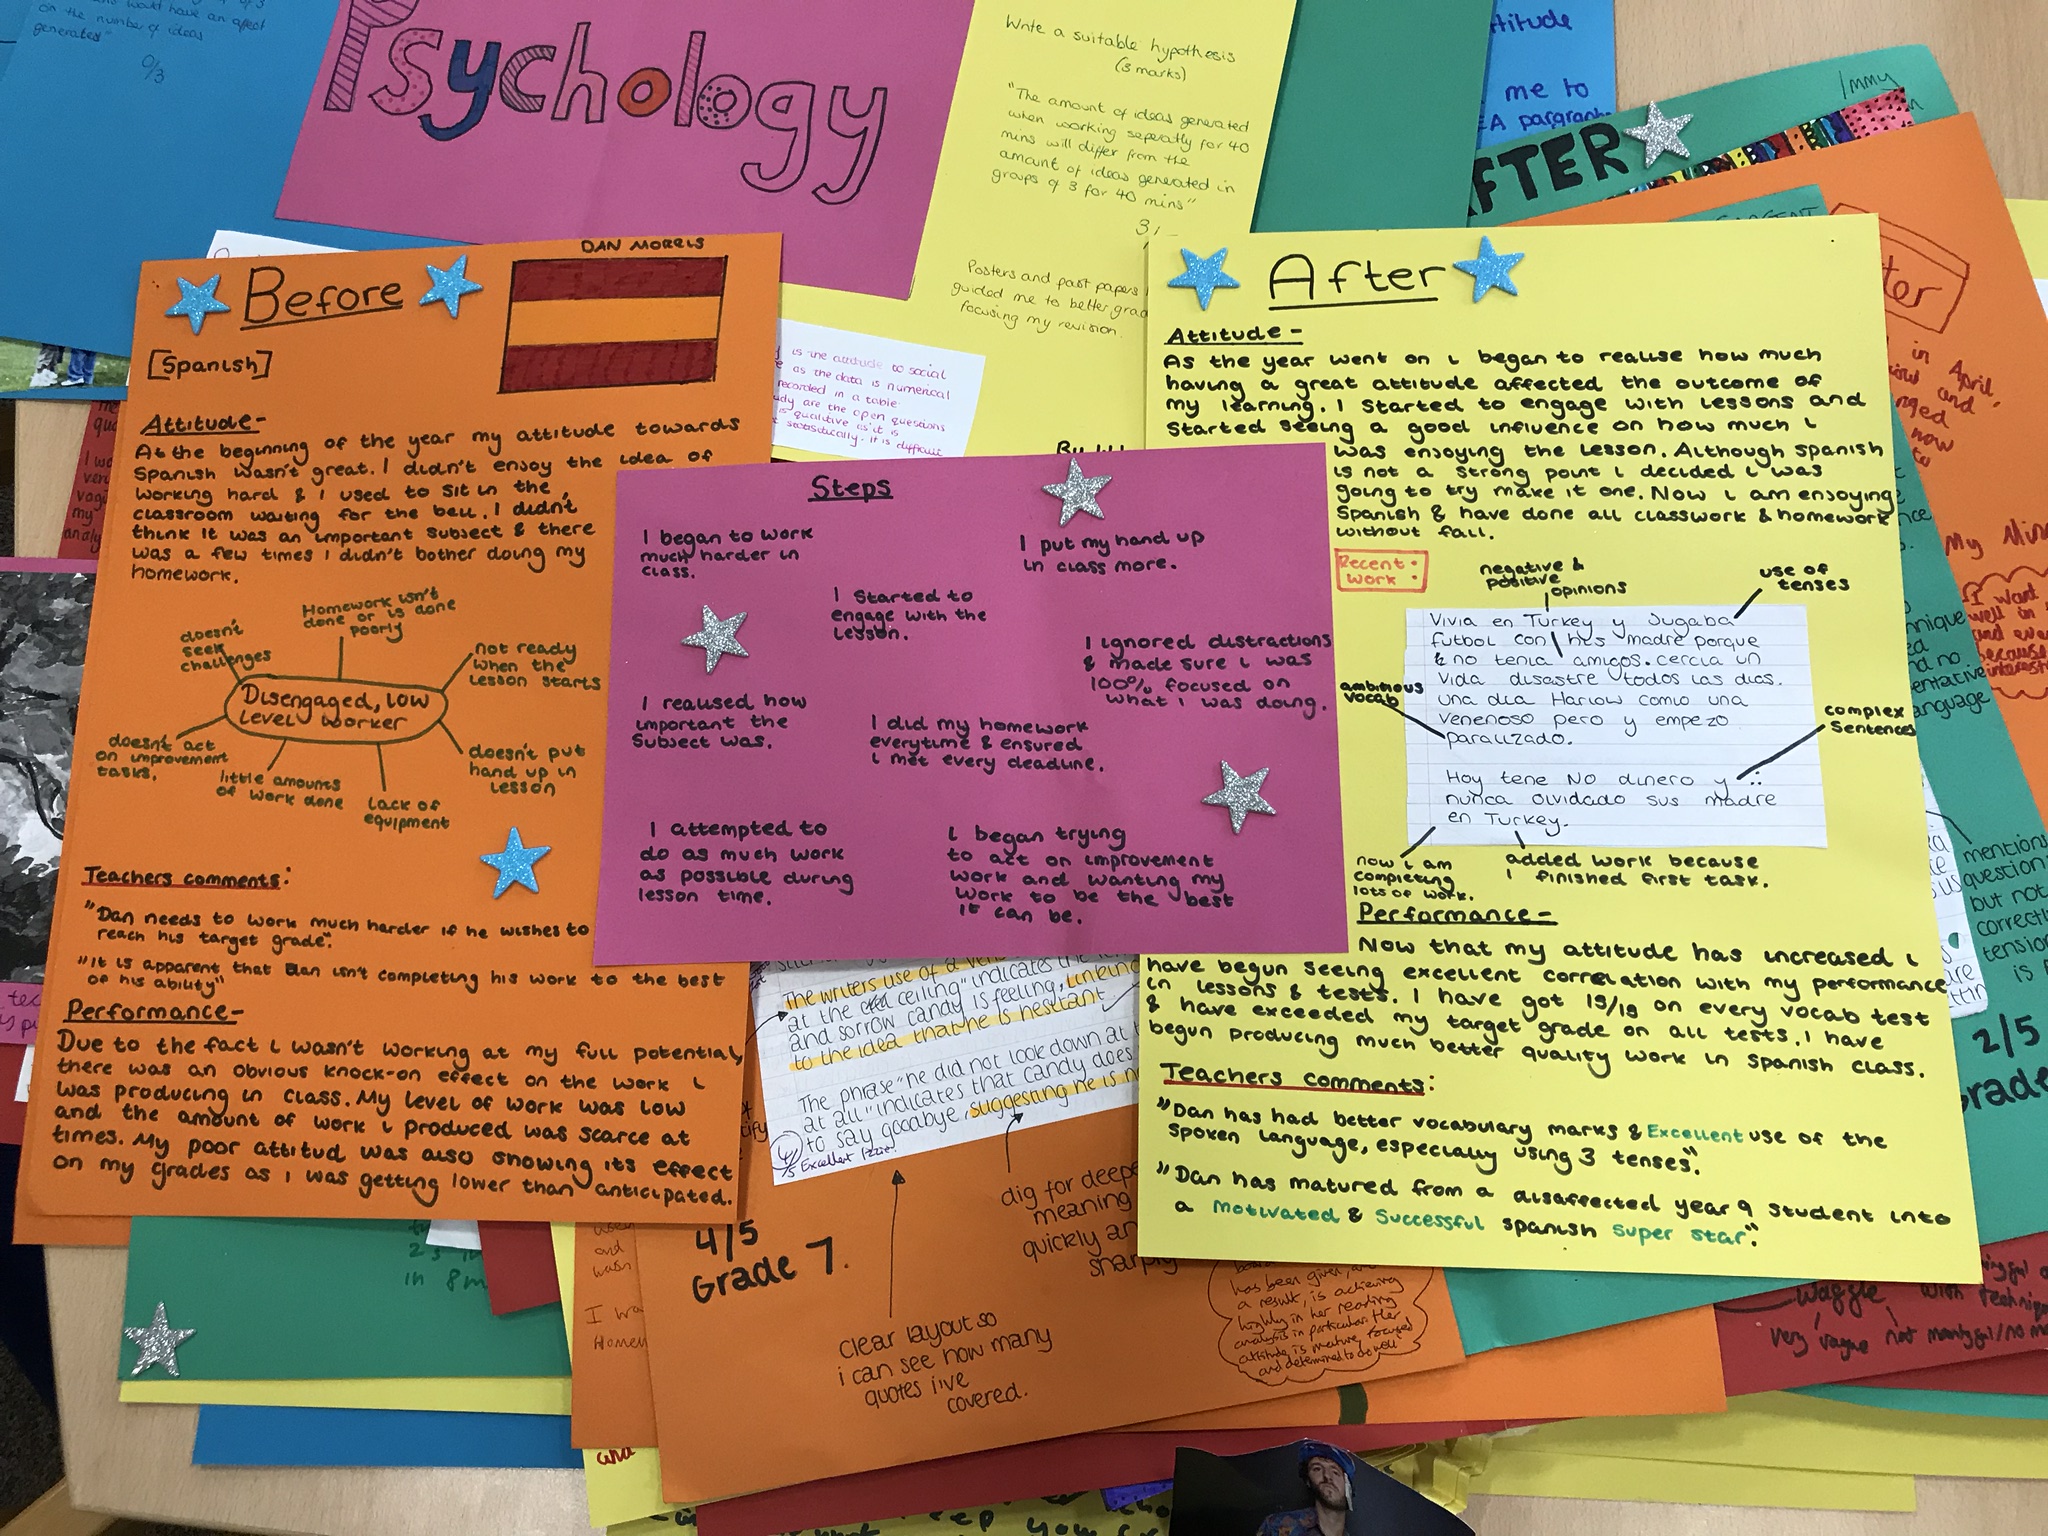 on the number of ideas
generated"
0/3
Psychology
Write a suitable hypothesis
(3 marks)
"The amount of ideas generated
when working seperatly for 40
mins will differ from the
amount of ideas generated in
groups of 3 for 40 mins"
Posters and past papers
guided me to better
focusing my revision.
me to
AFTER
is the attitude to social
as the data is numerical
recorded in a table
are the open questions
is qualitative as it is
statistically. it is difficult
DAN MORRIS
Before
[Spanish]
Attitude-
At the beginning of the year my attitude towards
Spanish wasn't great. I didn't enjoy the idea of
working hard & I used to sit in the
classroom waiting for the bell. I didn't
think it was an important subject & there
was a few times I didn't bother doing my
homework.
Homework isn't
done or is done
poorly
doesn't
seek
challenges
not ready
when the
lesson starts
Disengaged, low
level worker
doesn't act
on improvement
tasks.
little amounts
of work done
lack of
equipment
doesn't put
hand up in
lesson
Teachers comments:
"Dan needs to work much harder if he wishes to
reach his target grade".
"It is apparent that Dan isn't completing his work to the best
of his ability"
Performance-
Due to the fact I wasn't working at my full potential,
there was an obvious knock-on effect on the work I
was producing in class. My level of work was low
and the amount of work I produced was scarce at
times. My poor attitud was also showing its effect
on my grades as I was getting lower than anticipated.
Steps
I began to work
much harder in
class.
I put my hand up
in class more.
I started to
engage with the
lesson.
I ignored distractions
& made sure I was
100% focused on
what I was doing.
I realised how
important the
subject was.
I did my homework
everytime & ensured
I met every deadline.
I attempted to
do as much work
as possible during
lesson time.
I began trying
to act on improvement
work and wanting my
work to be the best
it can be.
After
Attitude-
As the year went on I began to realise how much
having a great attitude affected the outcome of
my learning. I started to engage with lessons and
started seeing a good influence on how much I
was enjoying the lesson. Although spanish
is not a strong point I decided I was
going to try make it one. Now I am enjoying
Spanish & have done all classwork & homework
without fail.
Recent
work:
negative &
positive
opinions
use of
tenses
Vivia en Turkey y Jugaba
futbol con his madre porque
no tenia amigos. cercia un
vida disastre todos las dias.
una dia Harlow como una
venenoso pero y empezo
paralizado.
Hoy tene NO dinero y
nunca olvidado sus madre
en Turkey.
ambitious
vocab
complex
sentences
now I am
completing
lots of work.
added work because
I finished first task.
Performance-
Now that my attitude has increased I
have begun seeing excellent correlation with my performance
in lessons & tests. I have got 19/19 on every vocab test
& have exceeded my target grade on all tests. I have
begun producing much better quality work in Spanish class.
Teachers comments:
"Dan has had better vocabulary marks & Excellent use of the
spoken language, especially using 3 tenses".
"Dan has matured from a disaffected year 9 student into
a Motivated & Successful spanish super star".
The writers use of a
at the ceiling" indicates the
and sorrow candy is feeling, linking
to the idea that he is hesitant
The phrase "he did not look down at
at all" indicates that candy does
to say goodbye, suggesting he is
Excellent Izzie!
4/5
Grade 7.
dig for deeper
meaning
quickly
sharply
clear layout so
i can see how many
quotes i've
covered.
has been given,
a result, is achieving
highly in her reading
analysis in particular. Her
attitude is mature, focused
and determined to do well"
in 8m
in April,
now
My Min
I want
well in
mentions
question
but not
correctly
tension
2/5
Grade
Waffle
very vague